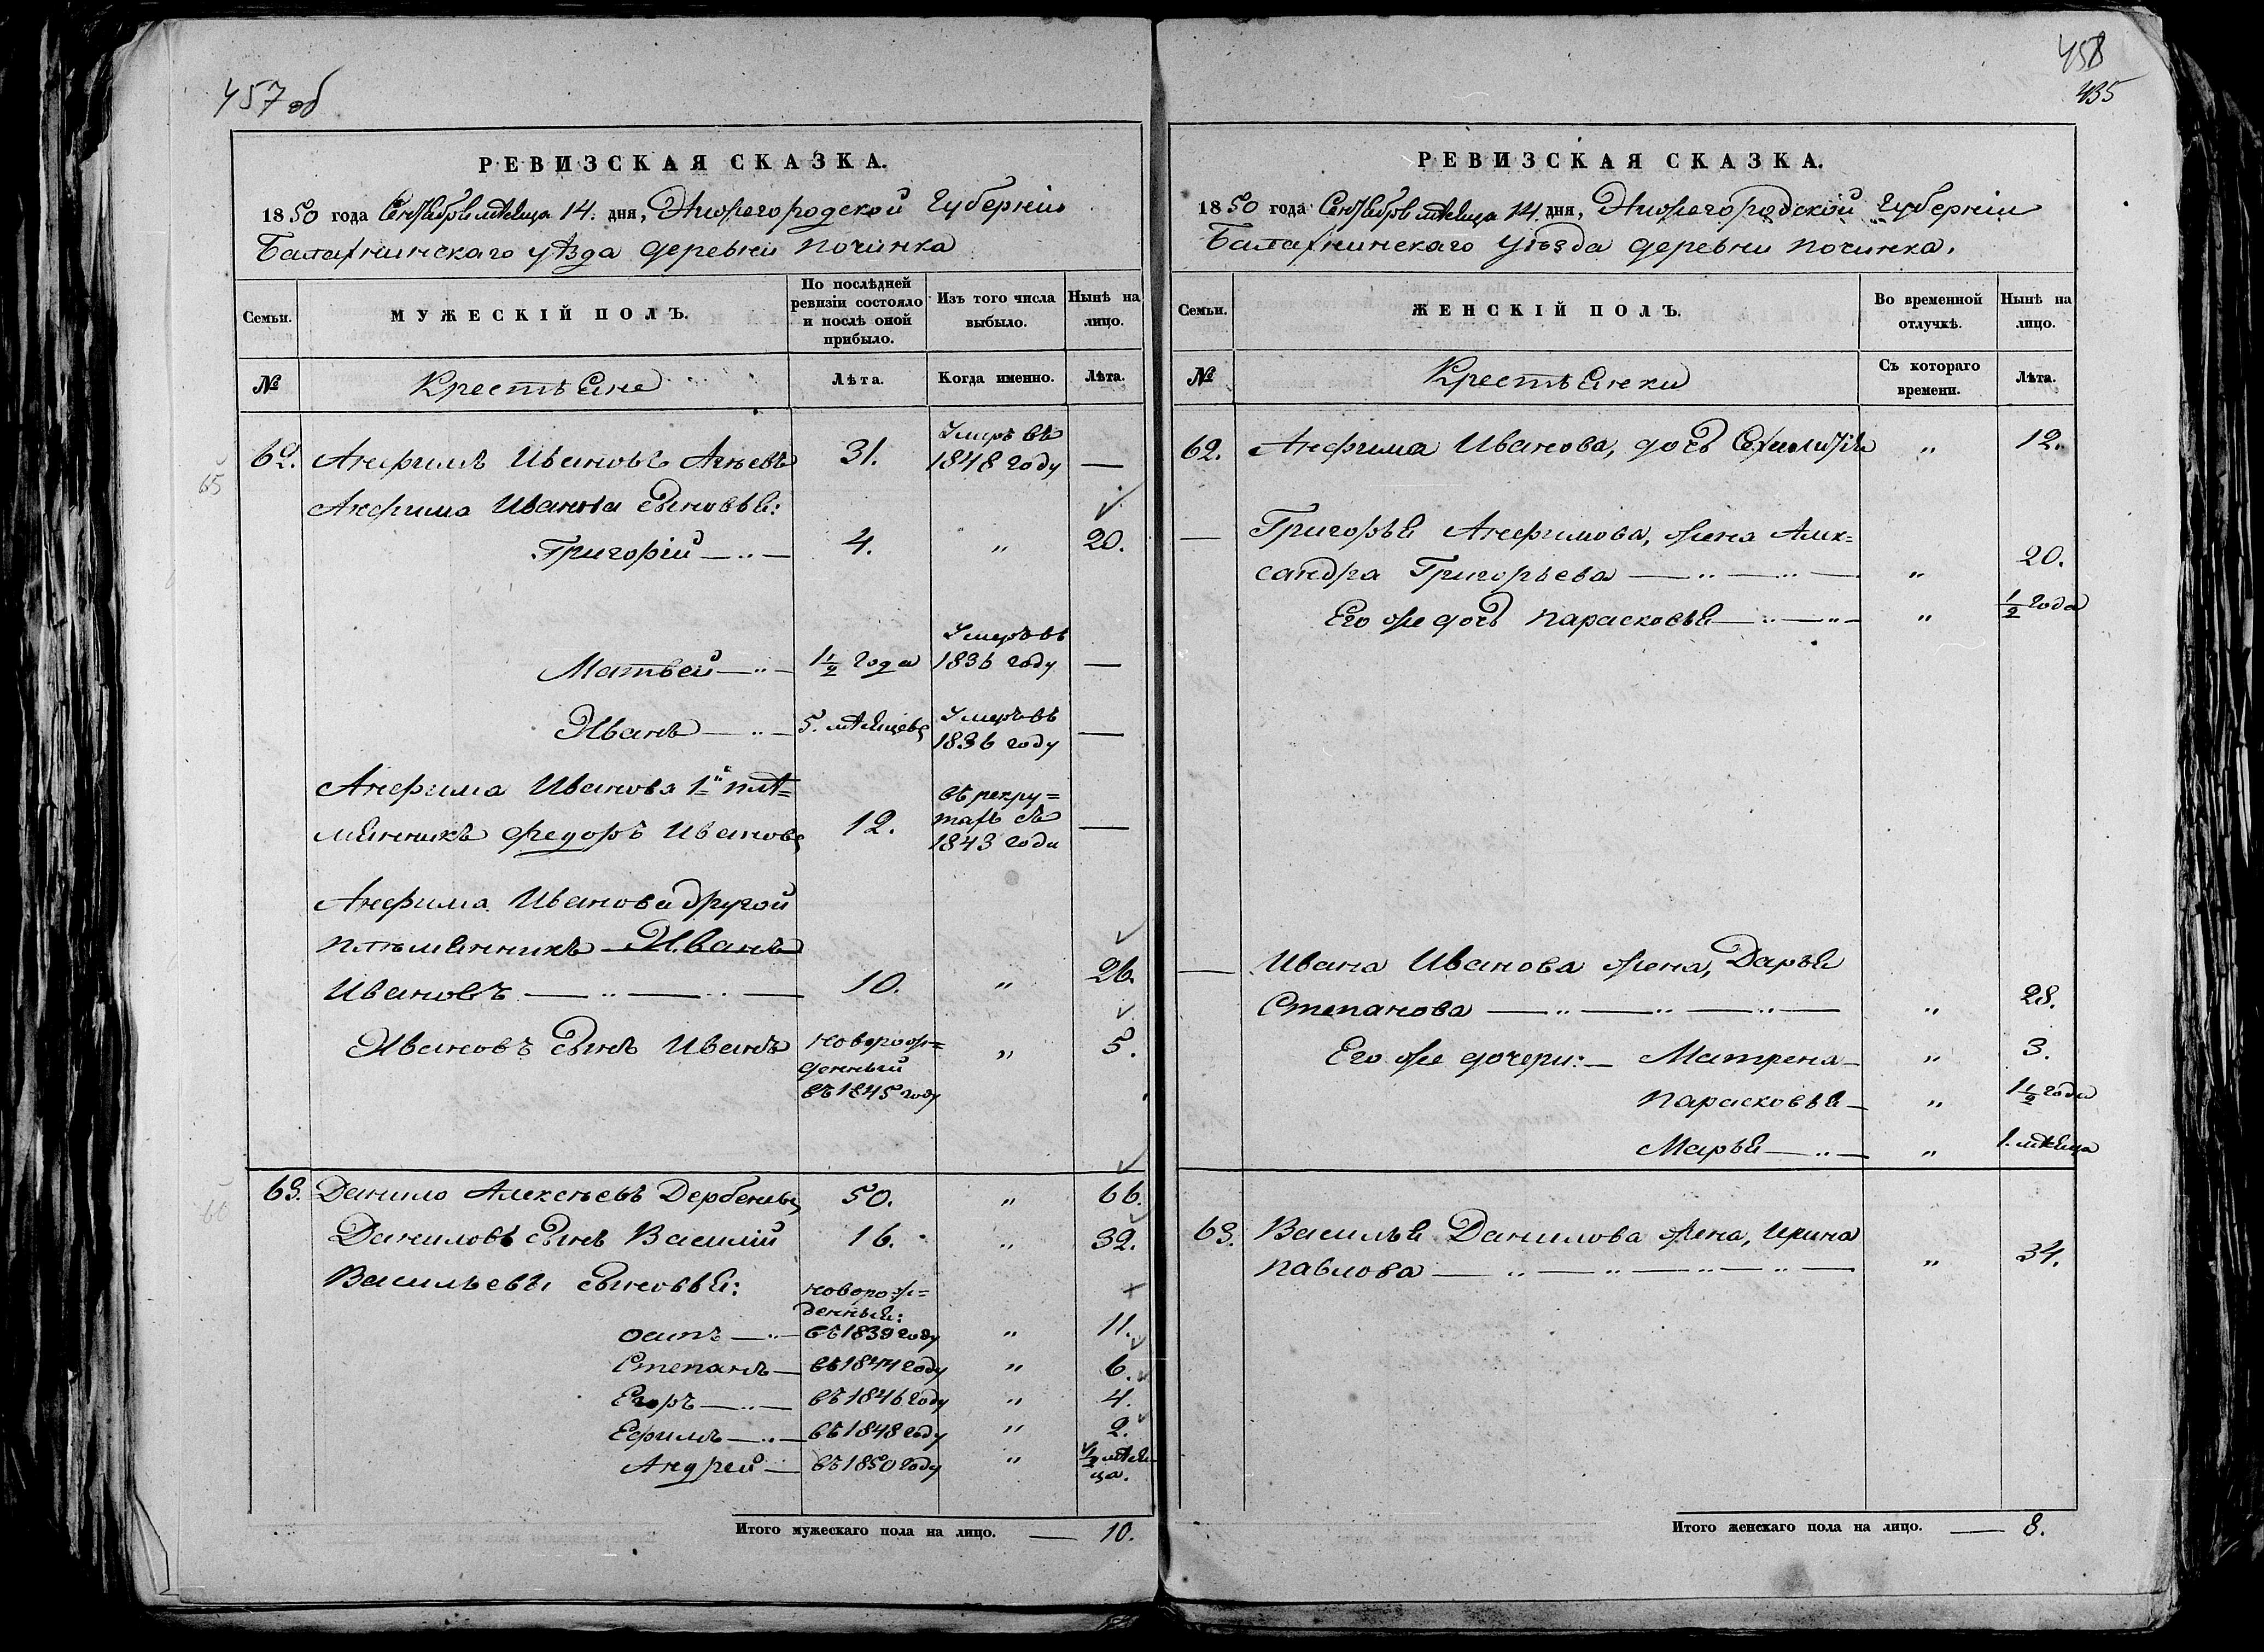 457 об
РЕВИЗСКАЯ СКАЗКА.
1850 года Сентября мѣсяца 14. дня, Нижегородской Губерніи
Балахнинскаго уѣзда деревни Починка
Семьи.
МУЖЕСКІЙ ПОЛЪ.
По послѣдней ревизіи состояло и послѣ оной прибыло.
Изъ того числа выбыло.
Нынѣ на лицо.
№
Крестьяне
Лѣта.
Когда именно.
Лѣта.
62. Анфимъ Ивановъ 31. Умеръ въ 1848 году —
65
Анфима Иванова сыновья:
Григорій 4. " 20.
Матвей 1½ года Умеръ въ 1836 году —
Иванъ 5. мѣсяцевъ Умеръ въ 1836 году —
Анфима Иванова 1й племѣ=
мянникъ Федоръ Ивановъ 12. въ рекру=
тахъ съ
1843 года —
Анфима Иванова другой
племянникъ Иванъ
Ивановъ 10. " 26.
Ивановъ сынъ Иванъ новорож=
денный
въ 1845 году " 5.
63. Данило Алексѣевъ 50. " 66.
66
Даниловъ сынъ Василій 16. " 32.
Васильевы сыновья: новорож=
денныя:
Осипъ въ 1839 году " 11.
Степанъ въ 1844 году " 6.
Егоръ въ 1846 году " 4.
Ефимъ въ 1848 году " 2.
Андрей въ 1850 году " ½ мѣся
ца.
Итого мужескаго пола на лицо. — 10.
458
435
РЕВИЗСКАЯ СКАЗКА.
1850 года Сентября мѣсяца 14. дня, Нижегородской Губерніи
Балахнинскаго уѣзда деревни Починка.
Семьи.
ЖЕНСКІЙ ПОЛЪ.
Во временной отлучкѣ.
Нынѣ на лицо.
№
Крестьянки
Съ котораго времени.
Лѣта.
62. Анфима Иванова, дочь " 12.
— Григорья Анфимова, жена Алек=
сандра Григорьева " 20.
Его же дочь Парасковья " ½ года
— Ивана Иванова жена, Дарья
Степанова " 28.
Его же дочери: Матрена " 3.
Парасковья " 1½ года
Марья " 1. мѣсяца
63. Василья Данилова жена, Ирина
Павлова " 34.
Итого женскаго пола на лицо. — 8.